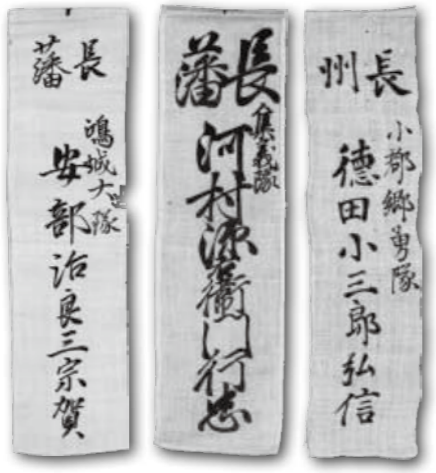 長州
小郡郷勇隊
德田小三郎弘信
長藩
集義隊
河村源衛門行忠
長藩
鴻城大隊
安部治良三宗賀